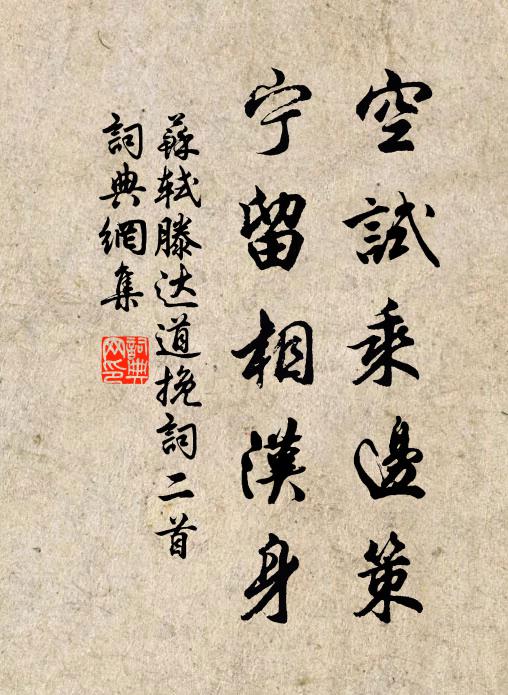 空試乘邊策
宁留相漢身
蘇軾滕达道挽詞二首
詞典網集
詞典网印